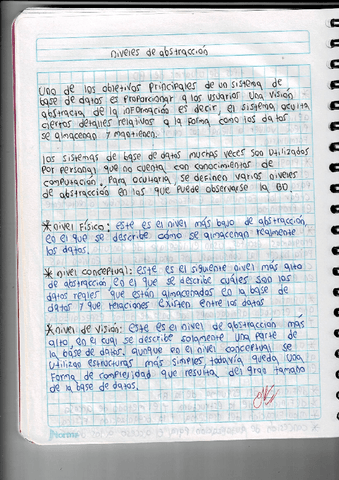 niveles de abstracción
Uno de los objetivos principales de un sistema de
base de datos es proporcionar a los usuarios una visión
abstracta de la información es decir, el sistema oculta
ciertos detalles relativos a la forma como los datos
se almacenan y mantienen.
Los sistemas de base de datos muchas veces son utilizados
por personal que no cuenta con conocimientos de
computación. Para ocultarla, se definen varios niveles
de abstracción en los que puede observarse la BD.
*nivel Físico: este es el nivel más bajo de abstracción,
en el que se describe cómo se almacenan realmente
los datos.
*nivel conceptual: este es el siguiente nivel más alto
de abstracción, en el que se describe cuáles son los
datos reales que están almacenados en la base de
datos y que relaciones existen entre los datos
*nivel de visión: este es el nivel de abstracción más
alto, en el cual se describe solamente una parte de
la base de datos. aunque en el nivel conceptual se
utilizan estructuras más simples, todavía queda una
forma de complejidad que resulta del gran tamaño
de la base de datos.